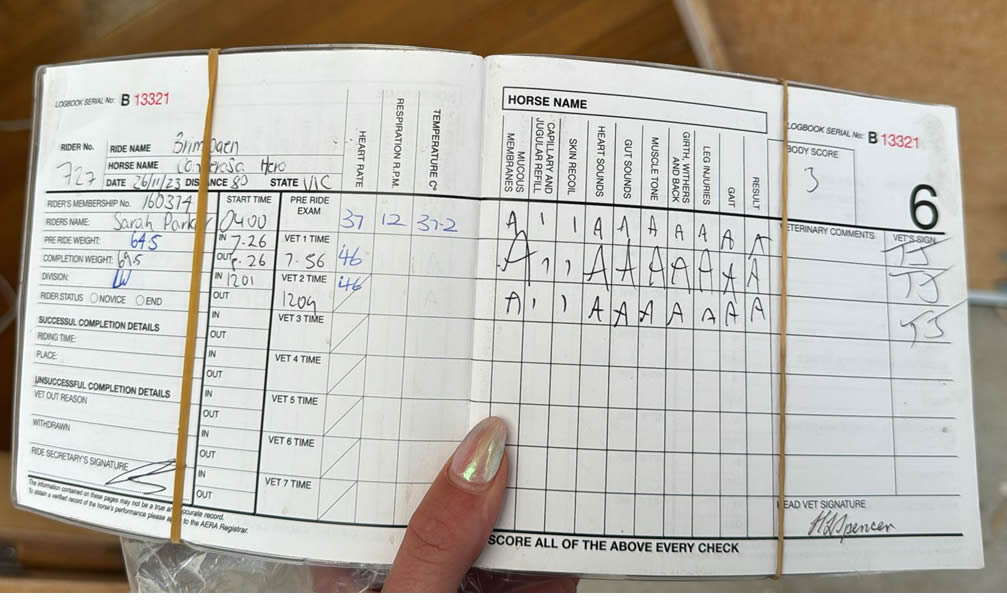 LOGBOOK SERIAL No: B 13321
RIDER No. 727
RIDE NAME Brimpaen
HORSE NAME Hero
DATE 26/11/23 DISTANCE 80 STATE VIC
HEART RATE
RESPIRATION R.P.M.
TEMPERATURE C°
RIDER'S MEMBERSHIP No. 160374
START TIME 0400
PRE RIDE EXAM 37 12 37.2
RIDERS NAME: Sarah Parker
PRE RIDE WEIGHT: 64.5
IN 7.26
VET 1 TIME 7.56 46
COMPLETION WEIGHT: 69.5
OUT .26
DIVISION: LW
IN 1201
VET 2 TIME 1209 46
RIDER STATUS NOVICE END
OUT
IN
VET 3 TIME
SUCCESSUL COMPLETION DETAILS
OUT
RIDING TIME:
IN
VET 4 TIME
PLACE:
OUT
UNSUCCESSFUL COMPLETION DETAILS
IN
VET 5 TIME
VET OUT REASON
OUT
IN
VET 6 TIME
WITHDRAWN
OUT
RIDE SECRETARY'S SIGNATURE
IN
VET 7 TIME
OUT
The information contained on these pages may not be a true and accurate record.
To obtain a verified record of the horse's performance please apply to the AERA Registrar.
HORSE NAME
LOGBOOK SERIAL No: B 13321
MUCOUS MEMBRANES
CAPILLARY AND JUGULAR REFILL
SKIN RECOIL
HEART SOUNDS
GUT SOUNDS
MUSCLE TONE
GIRTH, WITHERS AND BACK
LEG INJURIES
GAIT
RESULT
BODY SCORE
3
6
VETERINARY COMMENTS
VET'S SIGN.
A 1 1 A A A A A A A TJ
A 1 1 A A A A A A A TJ
A 1 1 A A A A A A A TJ
HEAD VET SIGNATURE
Spencer
SCORE ALL OF THE ABOVE EVERY CHECK